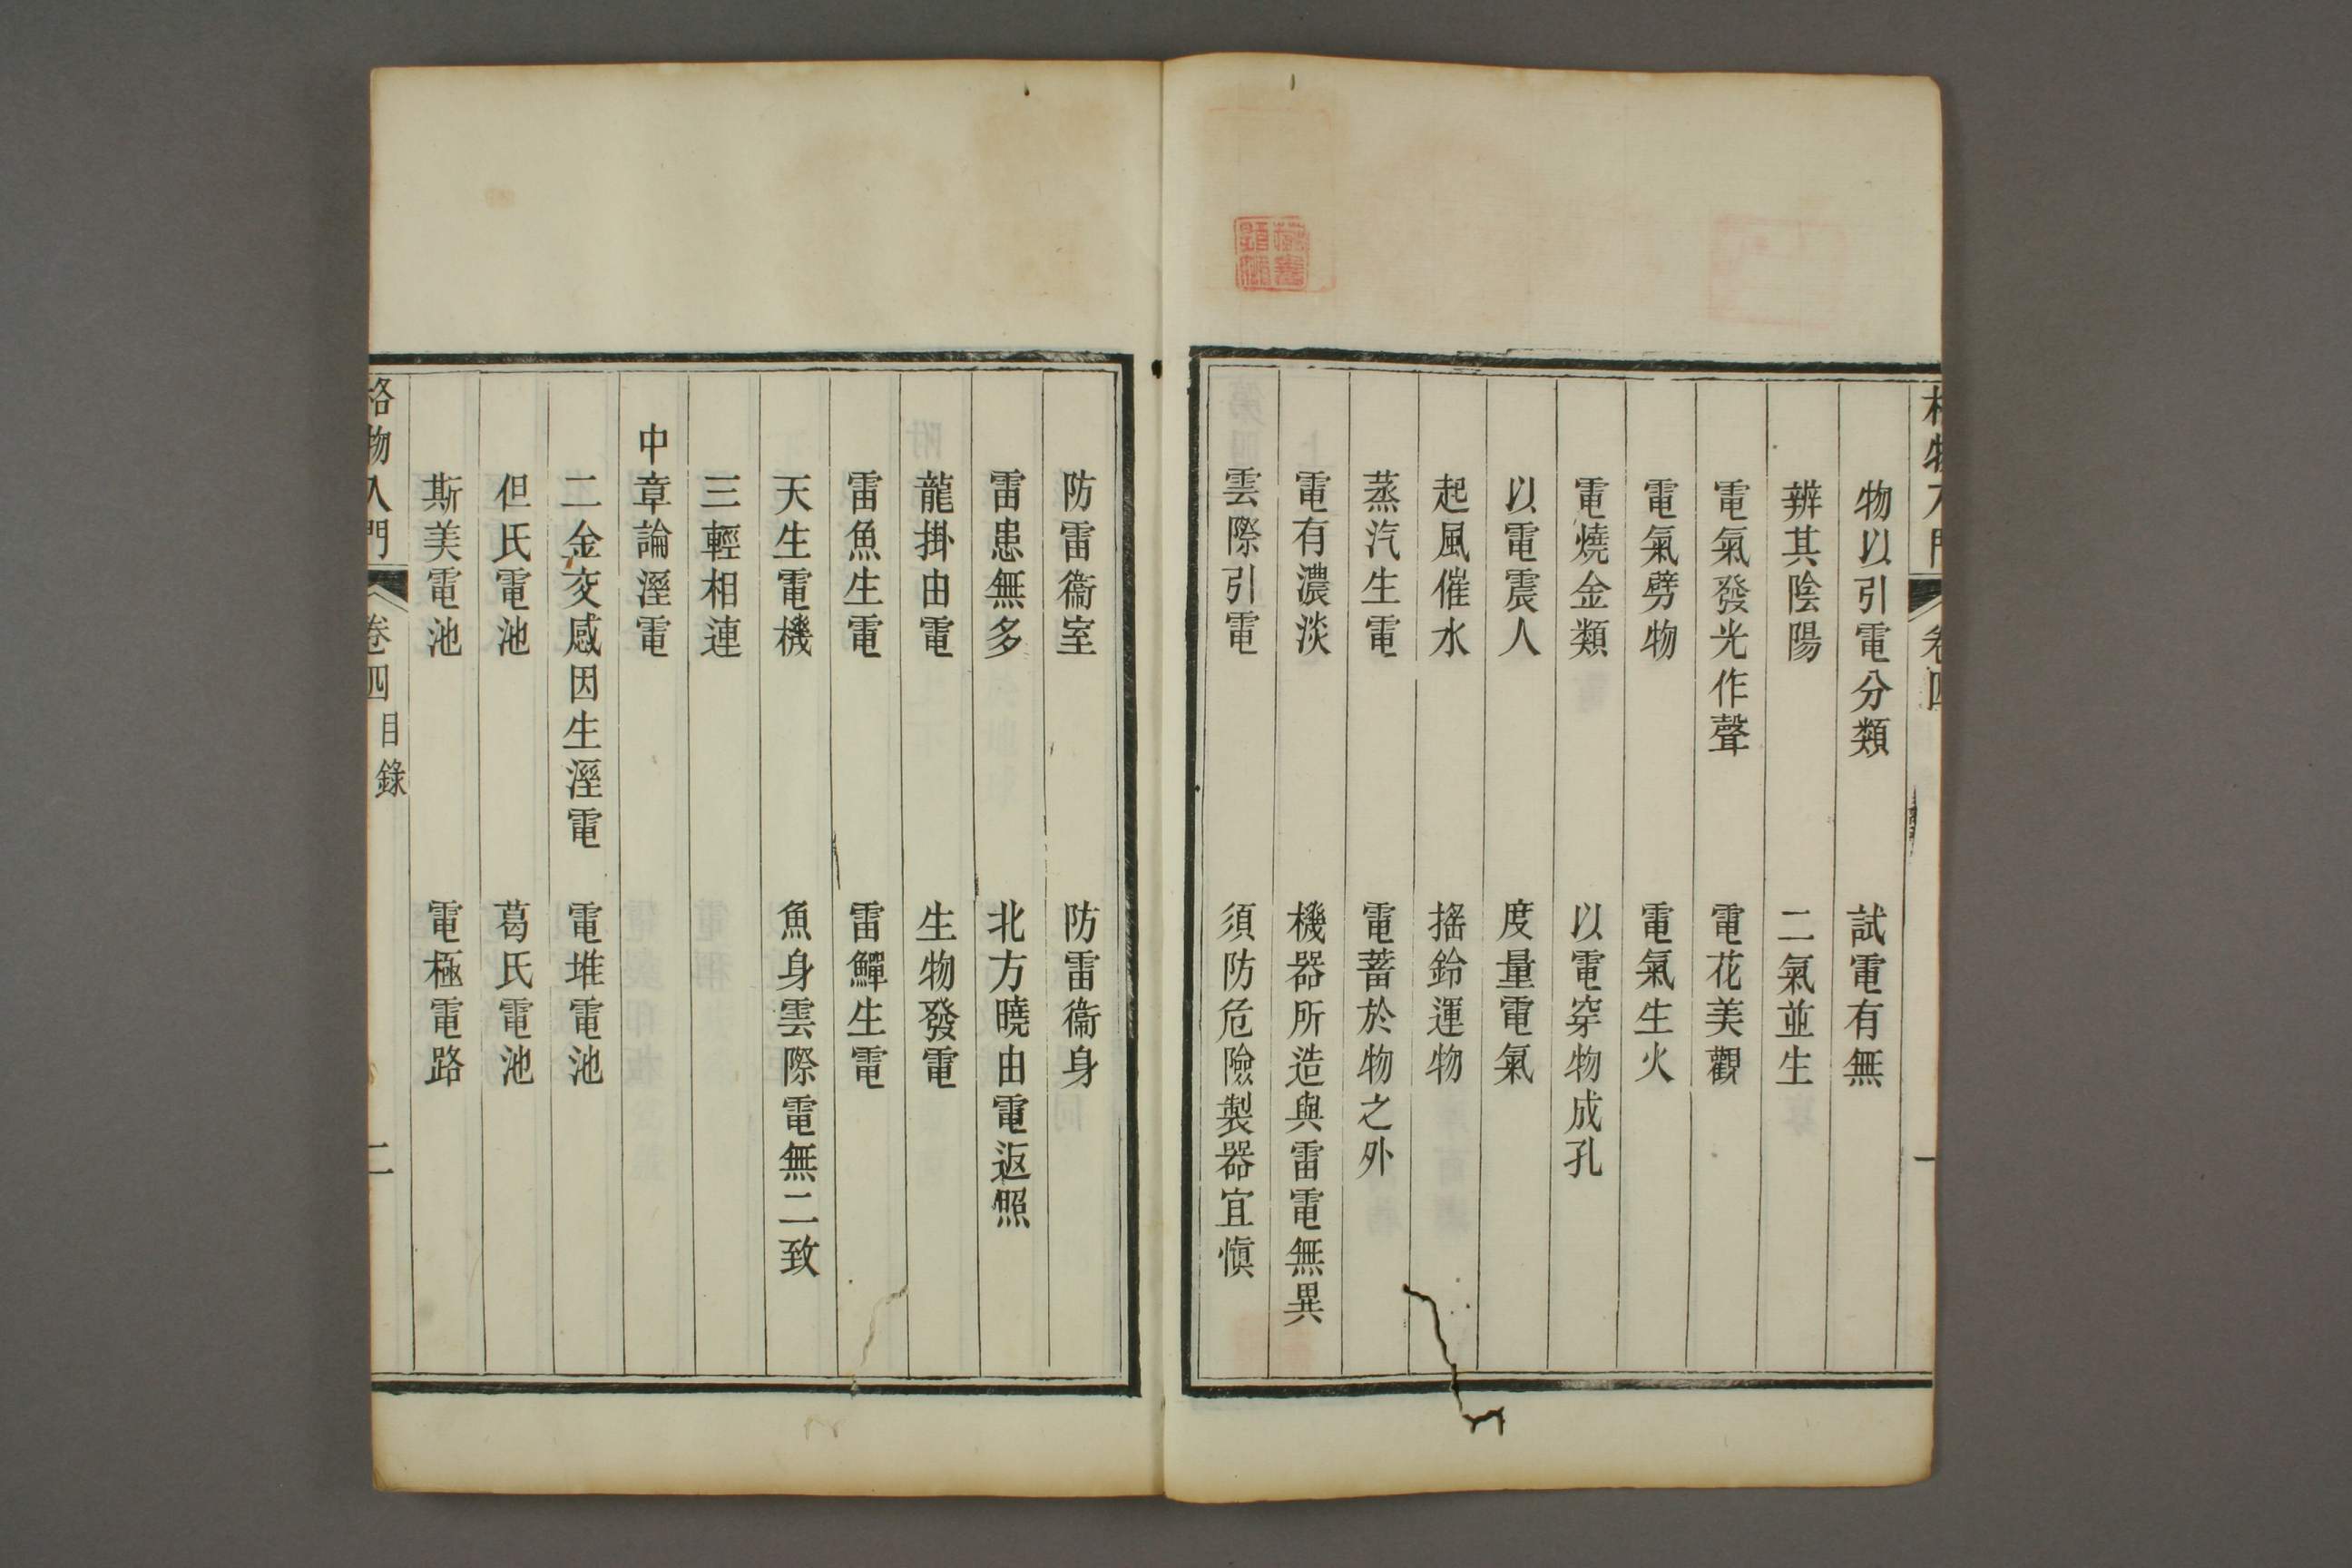 物以引電分類 試電有無
辨其陰陽 二氣並生
電氣發光作聲 電花美觀
電氣劈物 電氣生火
電燒金類 以電穿物成孔
以電震人 度量電氣
起風催水 搖鈴運物
蒸汽生電 電蓄於物之外
電有濃淡 機器所造與雷電無異
雲際引電 須防危險製器宜慎
防雷衞室 防雷衞身
雷患無多 北方曉由電返照
龍掛由電 生物發電
雷魚生電 雷鱓生電
天生電機 魚身雲際電無二致
三輕相連
中章論溼電
二金交感因生溼電 電堆電池
但氏電池 葛氏電池
斯美電池 電極電路
格物入門 卷四 目錄 二